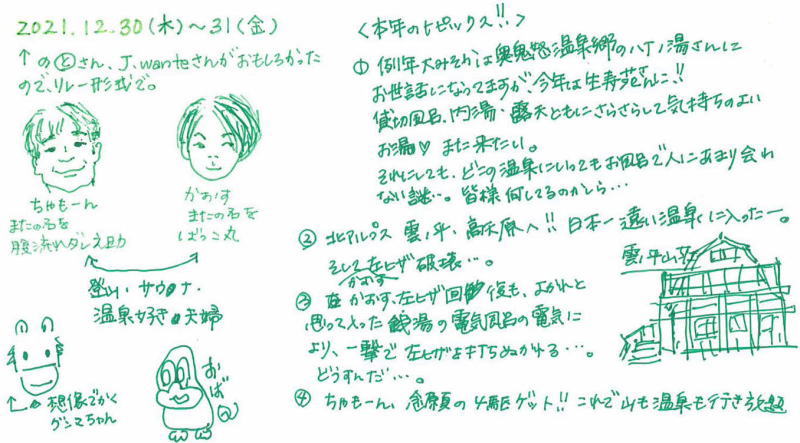 2021.12.30(木)〜31(金)
↑の㋣さん、J.wanteさんがおもしろかった
ので、リレー形式で。
ちゃもーん
またの名を
腹流れダレ之助
かおす
またの名を
ばっこ丸
登山・サウナ・
温泉好き夫婦
↑想像でかく
グンマちゃん
おばQ
<本年のトピックス!!>
① 例年大みそかは奥鬼怒温泉郷の八丁ノ湯さんに
お世話になってますが、今年は生寿苑さんに!!
貸切風呂、内湯・露天ともにさらさらして気持ちのよい
お湯♡ また来たい。
それにしても、どこの温泉にいってもお風呂で人にあまり会わ
ない謎…。皆様何してるのかしら…
② 北アルプス 雲ノ平、高天原へ!! 日本一遠い温泉に入ったー。
そして左ヒザ破壊…。
かおす
雲ノ平山荘
③ かおす、左ヒザ回復も、よかれと
思って入った銭湯の電気風呂の電気に
より、一撃で左ヒザを打ちぬかれる…。
どうすんだ…。
④ ちゃもーん、念願の4駆ゲット!! これで山も温泉も行き放題